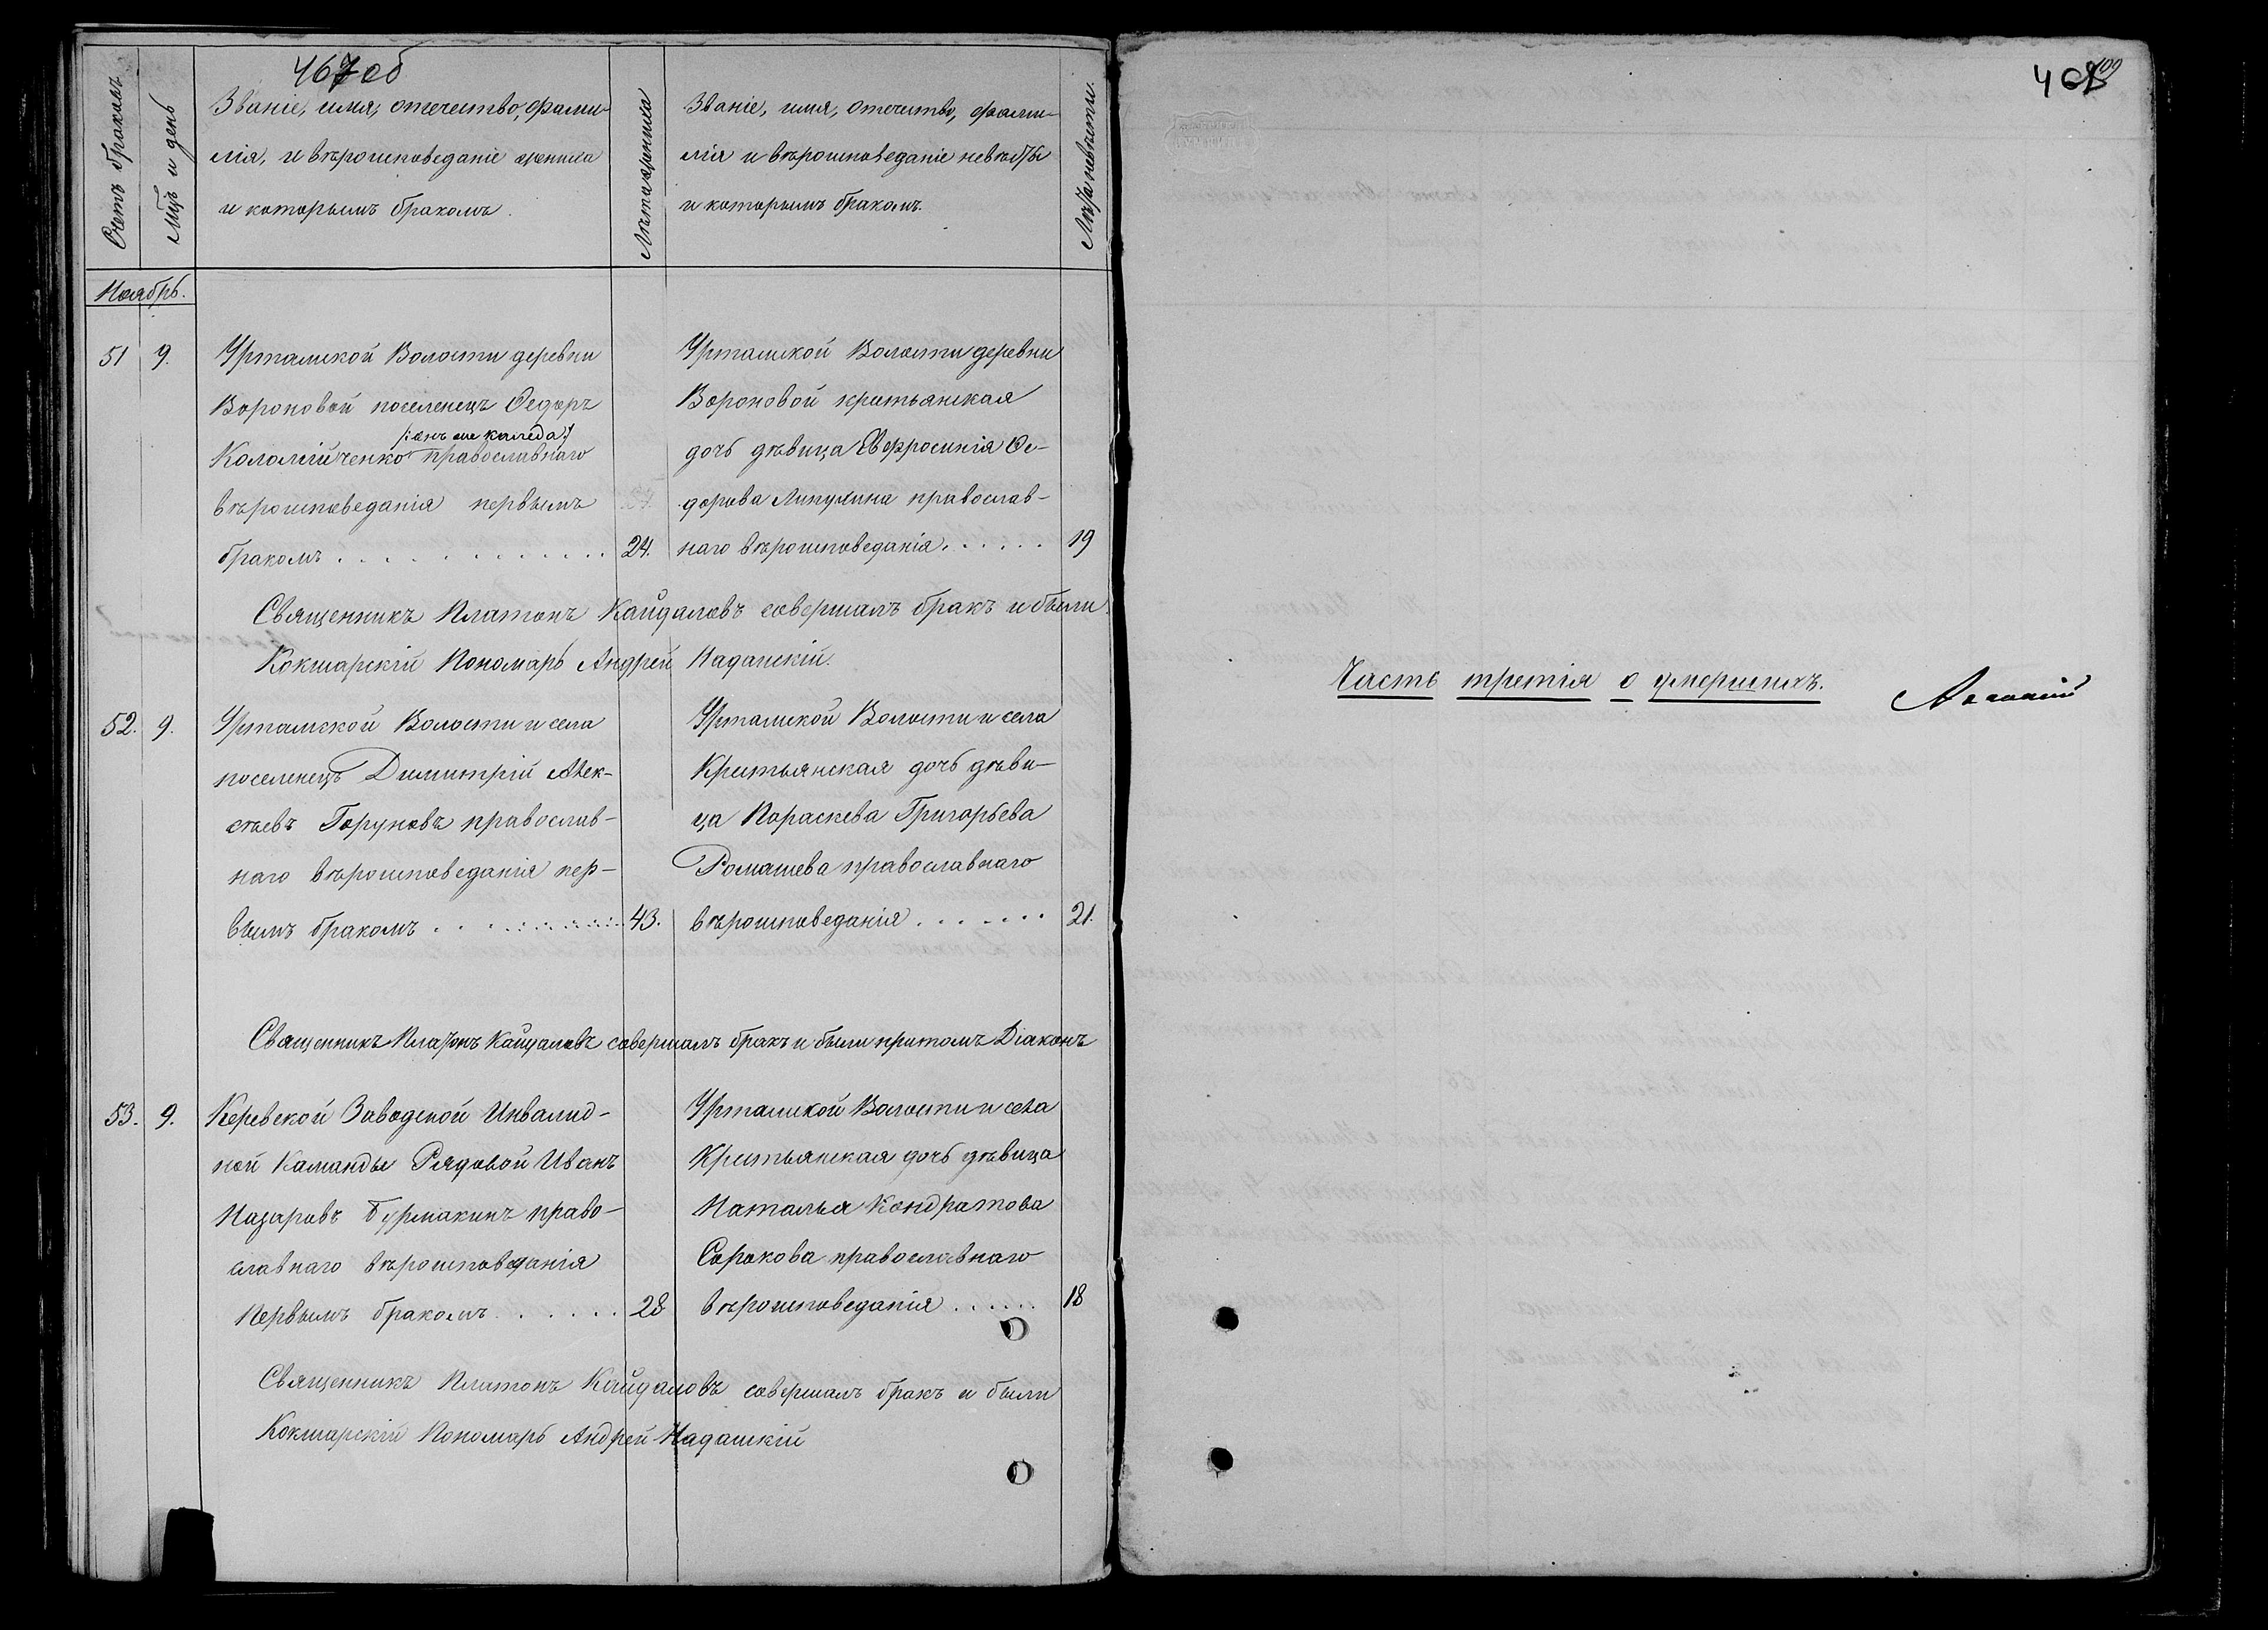 467 об
Счетъ браковъ
Мцъ и день
Званіе, имя, отечество, фами-
лія, и вѣроисповеданіе жениха
и которымъ бракомъ.
Лѣта жениха
Званіе, имя, отечество, фами-
лія и вѣроисповеданіе невѣсты
и которымъ бракомъ.
Лѣта невѣсты.
Ноябрь.
51 9.
Уртамской Волости деревни
Вороновой поселенецъ Ѳедоръ
/:онъ же каледа:/
Коломійченко православнаго
вѣроисповеданія первымъ
бракомъ . . . . . . . . . . . 24.
Уртамской Волости деревни
Вороновой крестьянская
дочь дѣвица Евфросинія Ѳе-
дорова Липухина православ-
наго вѣроисповеданія . . . . . . 19
Священникъ Платонъ Кайдаловъ совершалъ бракъ и были
Кокшарскій Пономарь Андрей Надашскій.
52. 9.
Уртамской Волости и села
поселенецъ Димитрій Алек-
сѣевъ Горуновъ православ-
наго вѣроисповеданія пер-
вымъ бракомъ . . . . . . . . . . 43.
Уртамской Волости и села
Крестьянская дочь дѣви-
ца Параскева Григорьева
Ромашева православнаго
вѣроисповеданія . . . . . . . 21.
Священникъ Платонъ Кайдаловъ совершалъ бракъ и были притомъ Діаконъ
53. 9.
Керевской Заводской Инвалид-
ной Каманды Рядовой Иванъ
Назаровъ Бурмакинъ право-
славнаго вѣроисповеданія
Первымъ бракомъ . . . . . . 28
Уртамской Волости и села
Крестьянская дочь дѣвица
Наталья Кондратова
Сорокова православнаго
вѣроисповеданія . . . . . . 18
Священникъ Платонъ Кайдаловъ совершалъ бракъ и были
Кокшарскій Пономарь Андрей Надашскій
468
Часть третія о умершихъ.